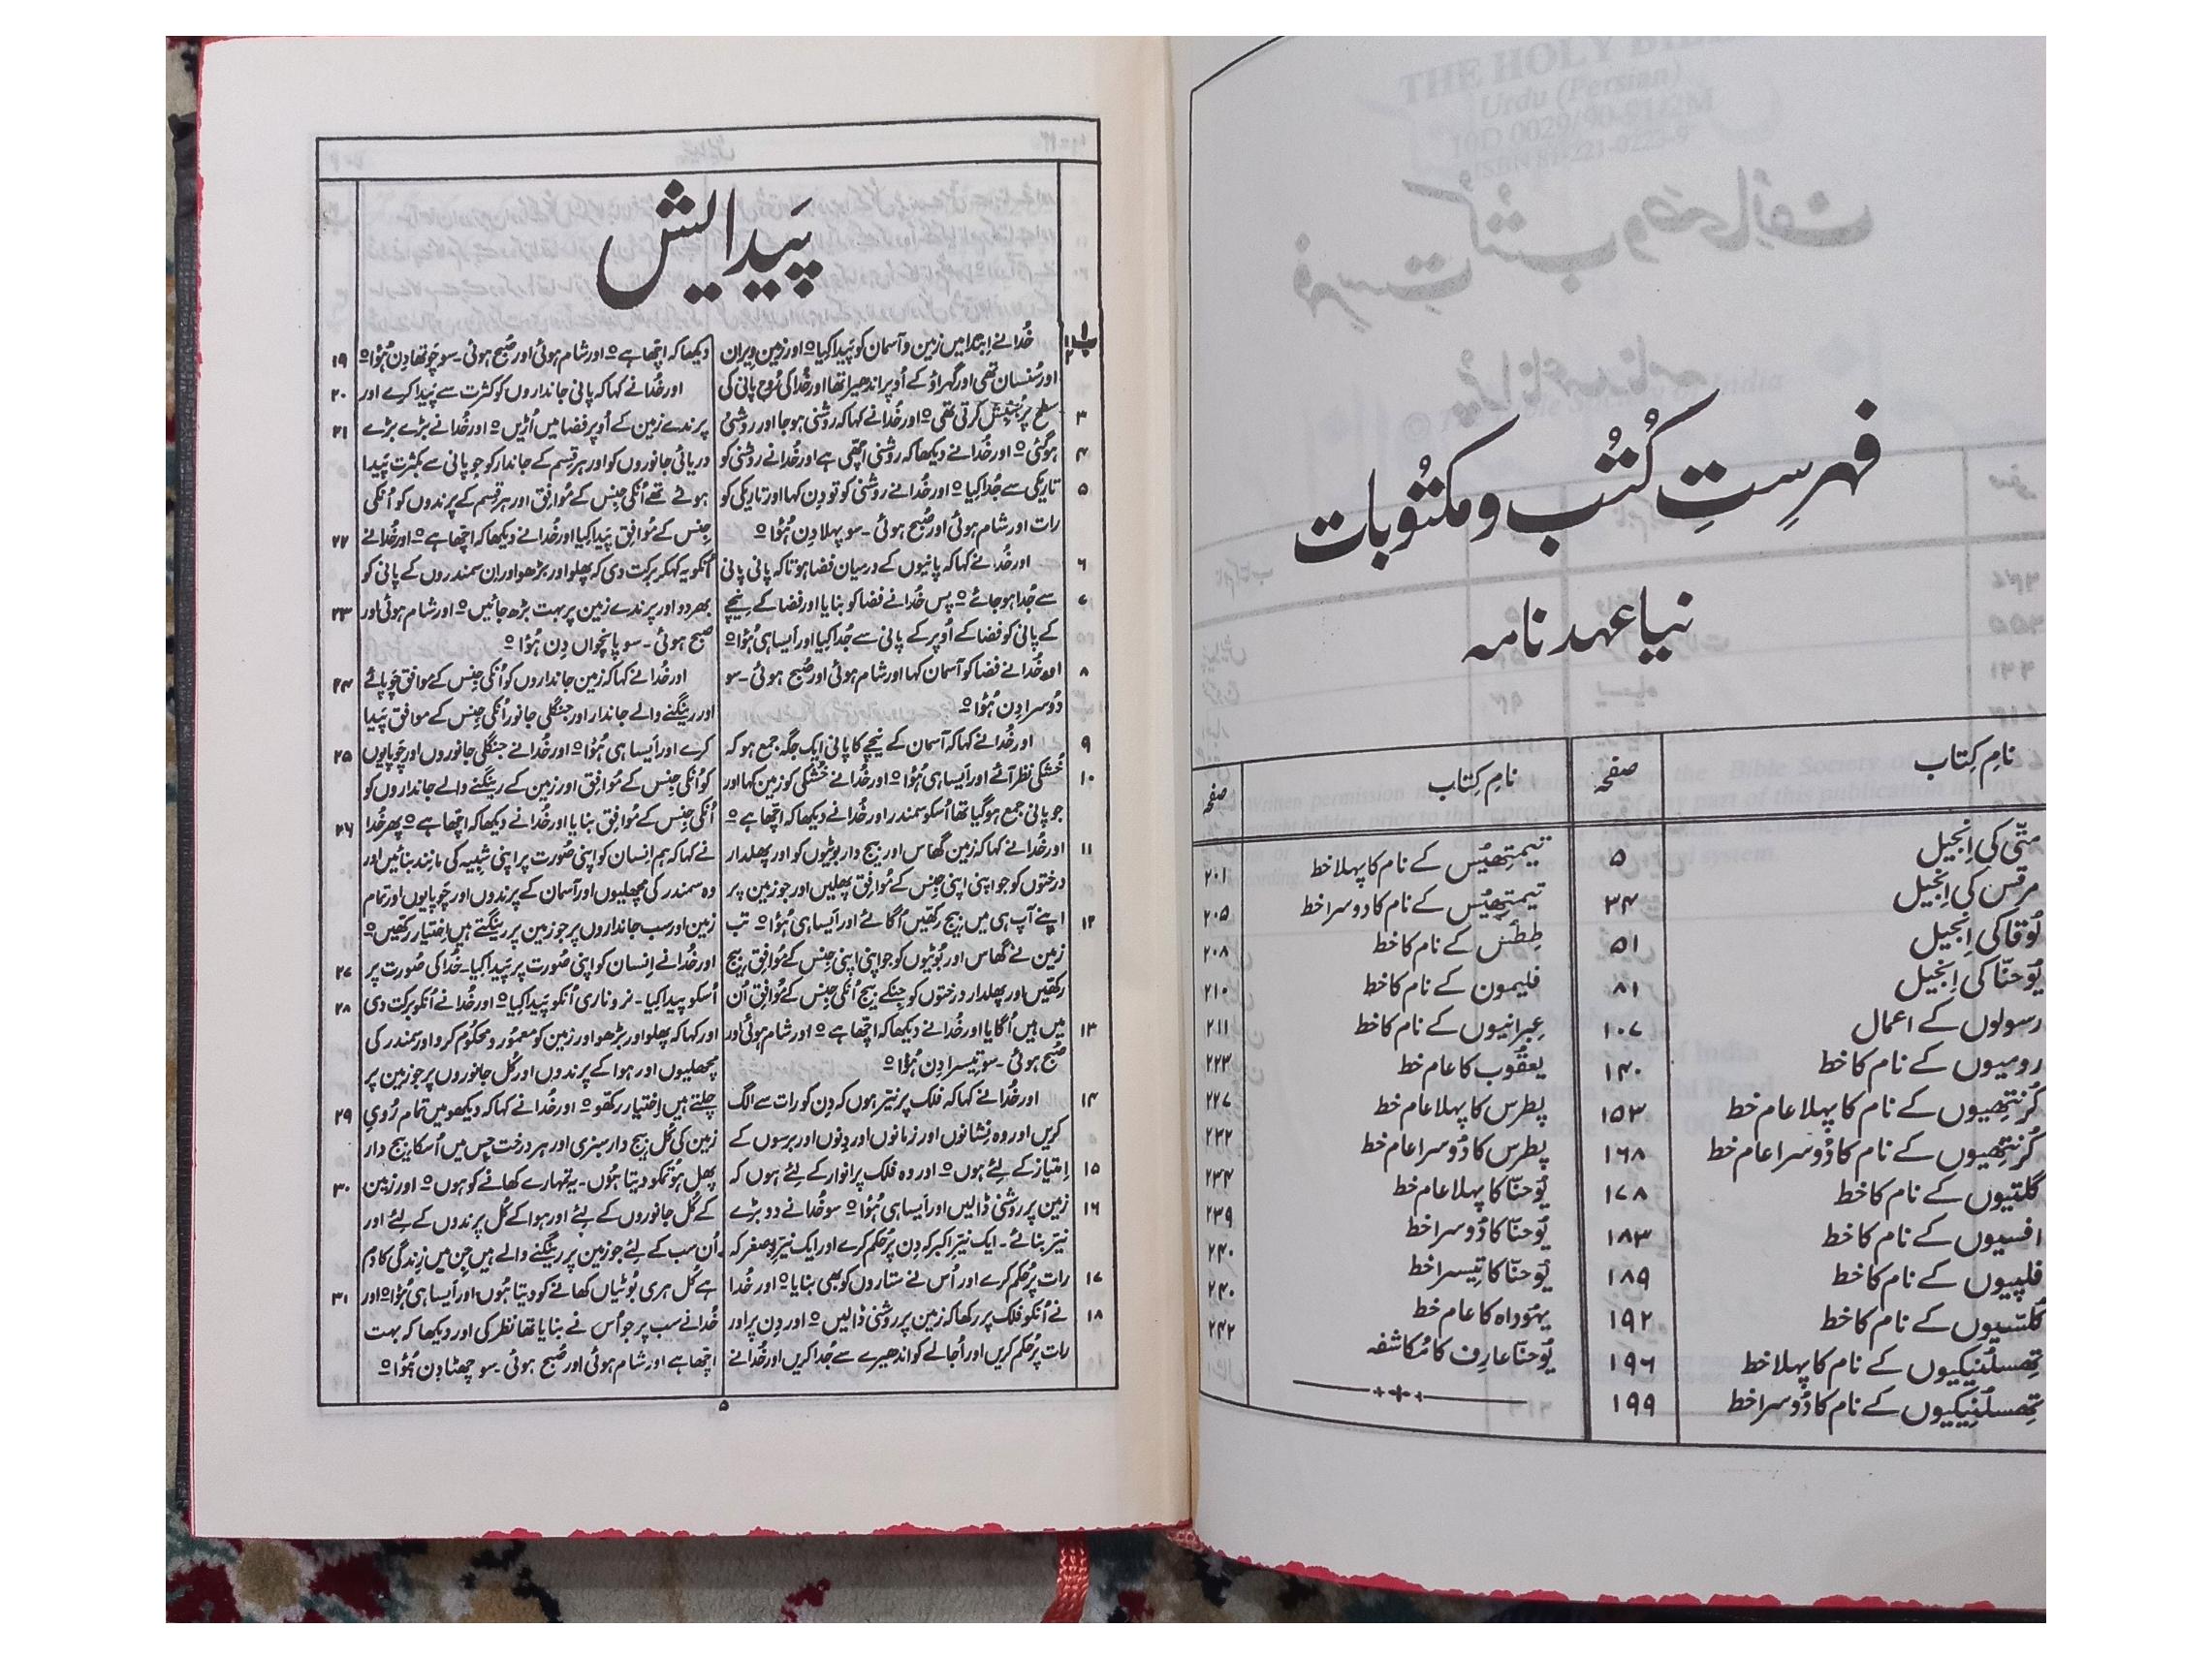 فہرستِ کُتُب و مکتُوبات
نیا عہد نامہ
نامِ کِتاب صفحہ نامِ کِتاب صفحہ
متّی کی اِنجیل ۵ تیمِتھیُس کے نام کا پہلا خط ۲۰۱
مرقس کی اِنجیل ۳۴ تیمِتھیُس کے نام کا دوسرا خط ۲۰۵
لُوقا کی اِنجیل ۵۱ طِطُس کے نام کا خط ۲۰۸
یُوحنّا کی اِنجیل ۸۱ فلیمون کے نام کا خط ۲۱۰
رسولوں کے اعمال ۱۰۷ عِبرانیوں کے نام کا خط ۲۱۱
رومیوں کے نام کا خط ۱۴۰ یعقُوب کا عام خط ۲۲۳
کُرنتھِیوں کے نام کا پہلا عام خط ۱۵۳ پطرس کا پہلا عام خط ۲۲۷
کُرنتھِیوں کے نام کا دُوسرا عام خط ۱۶۸ پطرس کا دُوسرا عام خط ۲۳۲
گلتیوں کے نام کا خط ۱۷۸ یُوحنّا کا پہلا عام خط ۲۳۴
افسیوں کے نام کا خط ۱۸۳ یُوحنّا کا دُوسرا خط ۲۳۹
فلپیوں کے نام کا خط ۱۸۹ یُوحنّا کا تِیسرا خط ۲۴۰
کُلسّیوں کے نام کا خط ۱۹۲ یہُوداہ کا عام خط ۲۴۰
تھِسلُنیکیوں کے نام کا پہلا خط ۱۹۶ یُوحنّا عارِف کا مُکاشفہ ۲۴۲
تھِسلُنیکیوں کے نام کا دُوسرا خط ۱۹۹
پَیدایش
باب ۱
۲ خُدا نے اِبتدا میں زمین و آسمان کو پَیدا کیا۝ اور زمین وِیران
اور سُنسان تھی اور گہراؤ کے اُوپر اندھیرا تھا اور خُدا کی رُوح پانی کی
۳ سطح پر جُنبِش کرتی تھی۝ اور خُدا نے کہا کہ روشنی ہو جا اور روشنی
۴ ہو گئی۝ اور خُدا نے دیکھا کہ روشنی اچھّی ہے اور خُدا نے روشنی کو
۵ تاریکی سے جُدا کیا۝ اور خُدا نے روشنی کو تو دِن کہا اور تاریکی کو
رات اور شام ہوئی اور صُبح ہوئی۔ سو پہلا دِن ہُؤا۝
۶ اور خُدا نے کہا کہ پانیوں کے درمیان فضا ہو تاکہ پانی پانی
۷ سے جُدا ہو جائے۝ پس خُدا نے فضا کو بنایا اور فضا کے نیچے
کے پانی کو فضا کے اُوپر کے پانی سے جُدا کیا اور اَیسا ہی ہُؤا۝
۸ اور خُدا نے فضا کو آسمان کہا اور شام ہوئی اور صُبح ہوئی۔ سو
دُوسرا دِن ہُؤا۝
۹ اور خُدا نے کہا کہ آسمان کے نیچے کا پانی ایک جگہ جمع ہو کہ
۱۰ خُشکی نظر آئے اور اَیسا ہی ہُؤا۝ اور خُدا نے خُشکی کو زمین کہا اور
جو پانی جمع ہو گیا تھا اُسکو سمندر اور خُدا نے دیکھا کہ اچھّا ہے۝
۱۱ اور خُدا نے کہا کہ زمین گھاس اور بیج دار بوٹیوں کو اور پھلدار
درختوں کو جو اپنی اپنی جِنس کے مُوافِق پھلیں اور جو زمین پر
۱۲ اپنے آپ ہی میں بیج رکھیں اُگائے اور اَیسا ہی ہُؤا۝ تب
زمین نے گھاس اور بُوٹیوں کو جو اپنی اپنی جِنس کے مُوافِق بیج
رکھیں اور پھلدار درختوں کو جِنکے بیج اُنکی جِنس کے مُوافِق اُن
۱۳ میں ہیں اُگایا اور خُدا نے دیکھا کہ اچھّا ہے۝ اور شام ہوئی اور
صُبح ہوئی۔ سو تیسرا دِن ہُؤا۝
۱۴ اور خُدا نے کہا کہ فلک پر نیّر ہوں کہ دِن کو رات سے الگ
کریں اور وہ نِشانوں اور زمانوں اور دِنوں اور برسوں کے
۱۵ اِمتیاز کے لِئے ہوں۝ اور وہ فلک پر انوار کے لِئے ہوں کہ
۱۶ زمین پر روشنی ڈالیں اور اَیسا ہی ہُؤا۝ سو خُدا نے دو بڑے
نیّر بنائے۔ ایک نیّرِ اکبر کہ دِن پر حُکم کرے اور ایک نیّرِ اصغر کہ
۱۷ رات پر حُکم کرے اور اُس نے ستاروں کو بھی بنایا۝ اور خُدا
۱۸ نے اُنکو فلک پر رکھا کہ زمین پر روشنی ڈالیں۝ اور دِن پر اور
رات پر حُکم کریں اور اُجالے کو اندھیرے سے جُدا کریں اور خُدا نے
دیکھا کہ اچھّا ہے۝ اور شام ہوئی اور صُبح ہوئی۔ سو چَوتھا دِن ہُؤا۝ ۱۹
اور خُدا نے کہا کہ پانی جانداروں کو کثرت سے پَیدا کرے اور ۲۰
پرندے زمین کے اُوپر فضا میں اُڑیں۝ اور خُدا نے بڑے بڑے ۲۱
دریائی جانوروں کو اور ہر قِسم کے جاندار کو جو پانی سے بکثرت پَیدا
ہوئے تھے اُنکی جِنس کے مُوافِق اور ہر قِسم کے پرندوں کو اُنکی
جِنس کے مُوافِق پَیدا کیا اور خُدا نے دیکھا کہ اچھّا ہے۝ اور خُدا نے ۲۲
اُنکو یہ کہکر برکت دی کہ پھلو اور بڑھو اور اِن سمندروں کے پانی کو
بھر دو اور پرندے زمین پر بہت بڑھ جائیں۝ اور شام ہوئی اور ۲۳
صبح ہوئی۔ سو پانچواں دِن ہُؤا۝
اور خُدا نے کہا کہ زمین جانداروں کو اُنکی جِنس کے موافق چَوپائے ۲۴
اور رینگنے والے جاندار اور جنگلی جانور اُنکی جِنس کے موافق پَیدا
کرے اور اَیسا ہی ہُؤا۝ اور خُدا نے جنگلی جانوروں اور چَوپایوں ۲۵
کو اُنکی جنس کے مُوافِق اور زمین کے رینگنے والے جانداروں کو
اُنکی جِنس کے مُوافِق بنایا اور خُدا نے دیکھا کہ اچھّا ہے۝ پھر خُدا ۲۶
نے کہا کہ ہم اِنسان کو اپنی صُورت پر اپنی شبِیہ کی مانِند بنائیں اور
وہ سمندر کی مچھلیوں اور آسمان کے پرندوں اور چَوپایوں اور تمام
زمین اور سب جانداروں پر جو زمین پر رینگتے ہیں اِختیار رکھیں۝
اور خُدا نے اِنسان کو اپنی صُورت پر پَیدا کیا۔ خُدا کی صُورت پر ۲۷
اُسکو پیدا کیا۔ نر و ناری اُنکو پَیدا کیا۝ اور خُدا نے اُنکو برکت دی ۲۸
اور کہا کہ پھلو اور بڑھو اور زمین کو معمُور و محکُوم کرو اور سمندر کی
مچھلیوں اور ہوا کے پرندوں اور کُل جانوروں پر جو زمین پر
چلتے ہیں اِختیار رکھّو۝ اور خُدا نے کہا کہ دیکھو میں تمام رُویِ ۲۹
زمین کی کُل بیج دار سبزی اور ہر درخت جِس میں اُسکا بیج دار
پھل ہو تمکو دیتا ہُوں۔ یہ تمہارے کھانے کو ہوں۝ اور زمین ۳۰
کے کُل جانوروں کے لِئے اور ہوا کے کُل پرندوں کے لِئے اور
اُن سب کے لِئے جو زمین پر رینگنے والے ہیں جِن میں زِندگی کا دم
ہے کُل ہری بُوٹیاں کھانے کو دیتا ہُوں اور اَیسا ہی ہُؤا۝ اور ۳۱
خُدا نے سب پر جو اُس نے بنایا تھا نظر کی اور دیکھا کہ بہت
اچھّا ہے اور شام ہوئی اور صُبح ہوئی۔ سو چھٹا دِن ہُؤا۝
۵